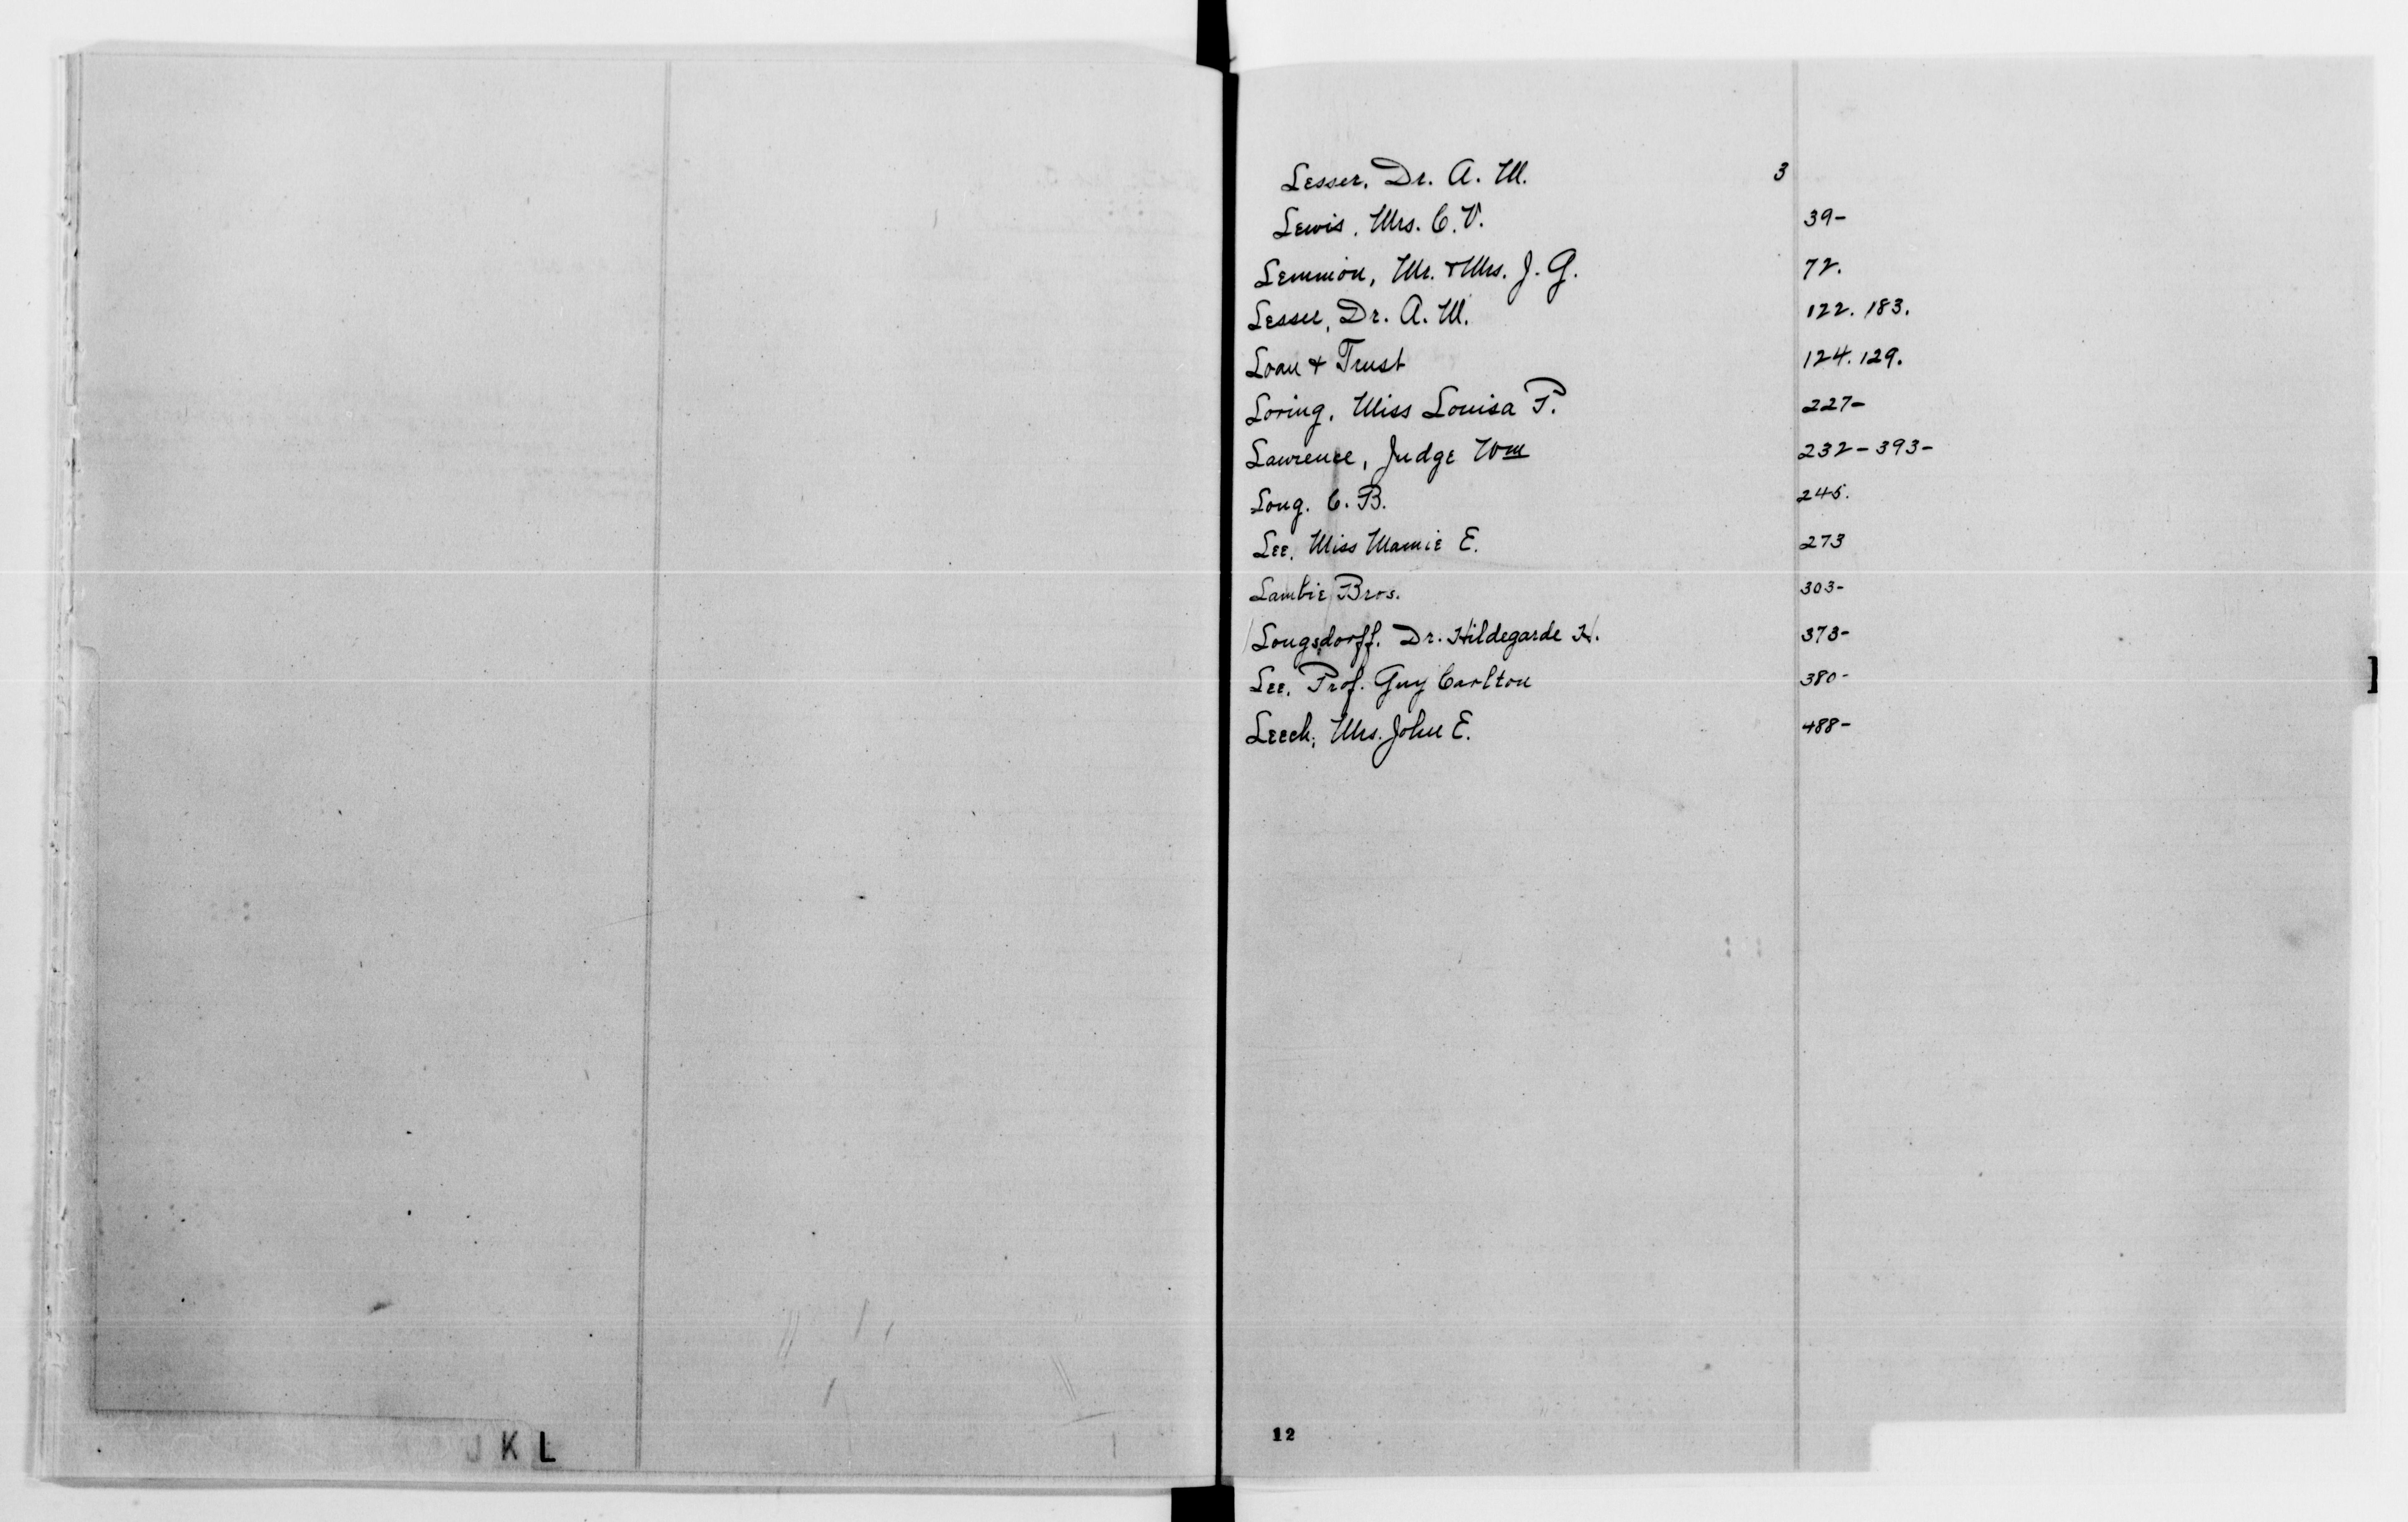 Lesser, Dr. A. M. 3
Lewis, Mrs. C. V. 39-
Lemmon, Mr. & Mrs. J. G. 72.
Lesser, Dr. A. M. 122. 183.
Loan & Trust 124. 129.
Loring, Miss Louisa P. 227-
Lawrence, Judge Wm 232-393-
Long. C. B. 245.
Lee, Miss Mamie E. 273
Lambie Bros. 303-
Longsdorff. Dr. Hildegarde H. 373-
Lee, Prof. Guy Carlton 380-
Leech, Mrs. John E. 488-
J K L
12